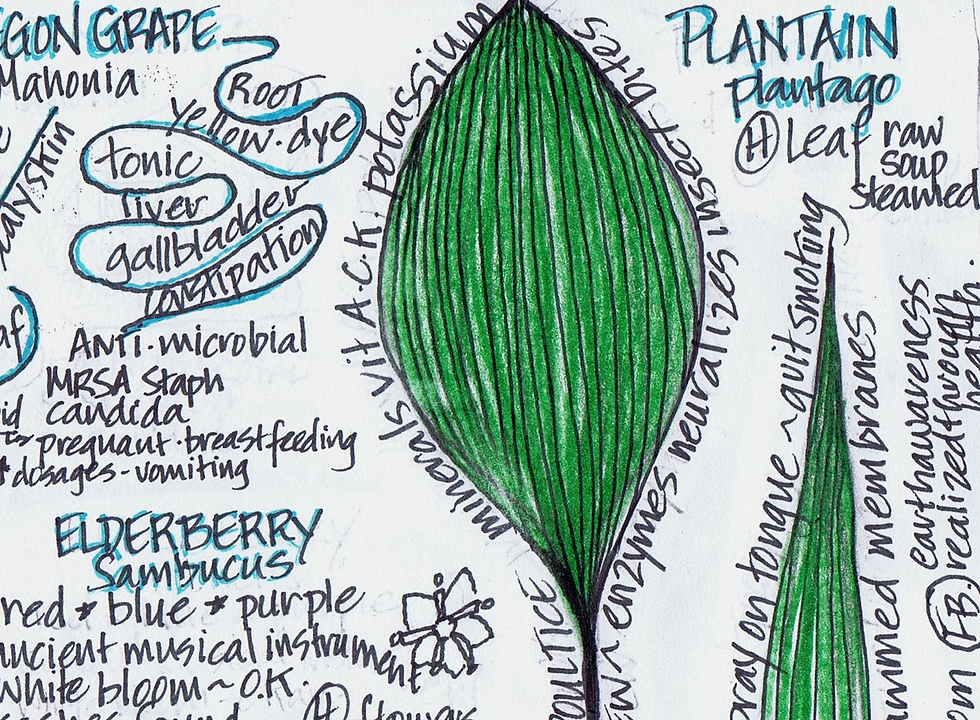 EGON GRAPE
Mahonia
ROOT
Yellow.dye
tonic
liver
gallbladder
constipation
af
ANTI.microbial
MRSA Staph
id candida
pregnant.breastfeeding
* dosages-vomiting
ELDERBERRY
Sambucus
red * blue * purple
ancient musical instrument
white bloom ~ O.K.
(H) flowers
minerals Vit A.C.K. potassium
POULTICE
enzymes neuralizes insect bites
PLANTAIN
plantago
(H) Leaf raw
soup
steamed
pray on tongue ~ quit smoking
membranes
earthawareness
(FB) realized through
health.